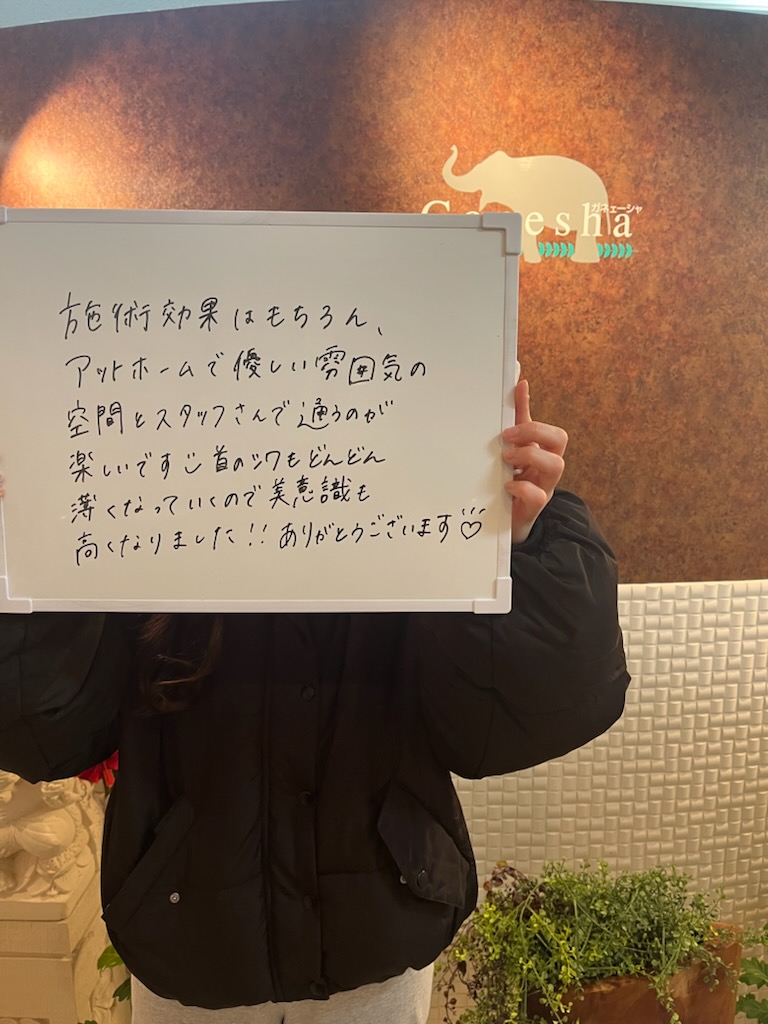 ガネーシャ
Ganesha
施術効果はもちろん、
アットホームで優しい雰囲気の
空間とスタッフさんで通うのが
楽しいです 首のシワもどんどん
薄くなっていくので美意識も
高くなりました!! ありがとうございます♡